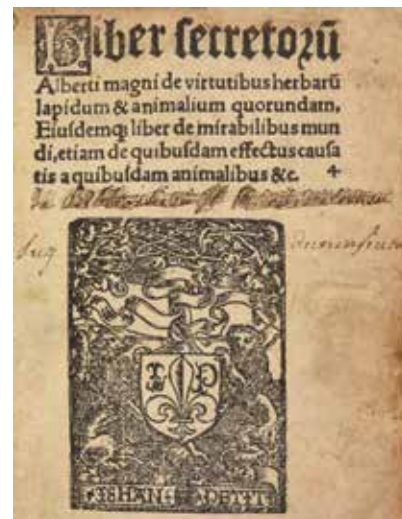 Liber secretorū
Alberti magni de virtutibus herbarū
lapidum & animalium quorundam.
Eiusdemq; liber de mirabilibus mun
di, etiam de quibusdam effectus causa
tis a quibusdam animalibus &c.
I P
IEHAN PETIT